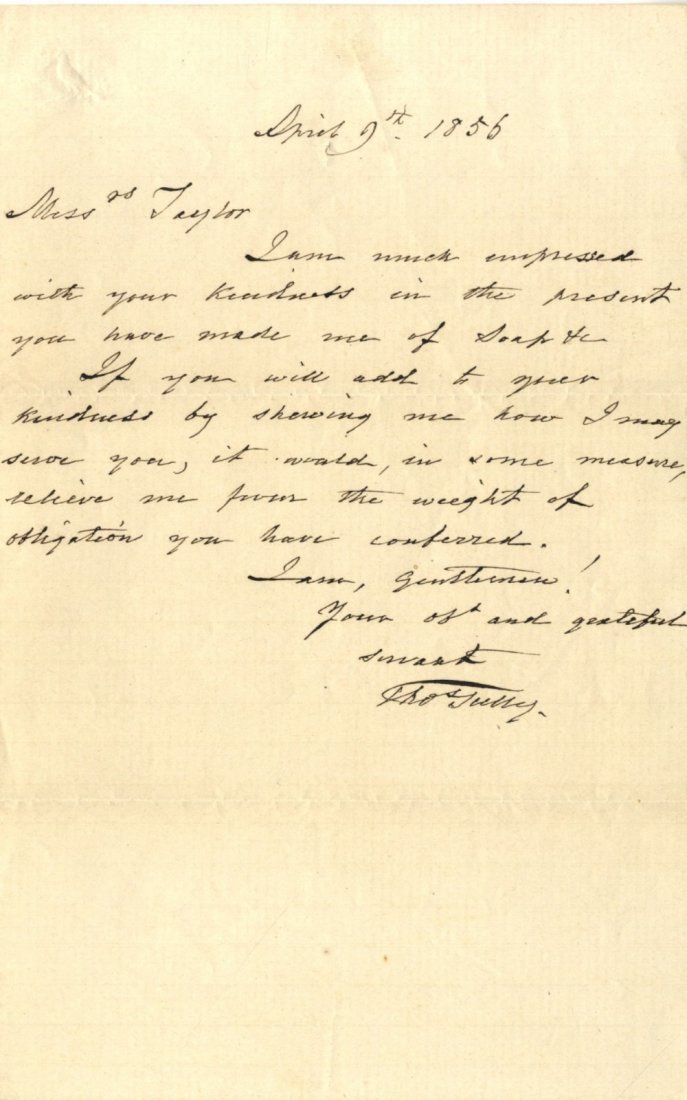 April 9th. 1856
Messrs Taylor
I am much impressed
with your kindness in the present
you have made me of Soap &c
If you will add to your
kindness by shewing me how I may
serve you, it would, in some measure,
relieve me from the weight of
obligation you have conferred.
I am, Gentlemen!
Your obt and grateful
servant
Thos Sully.